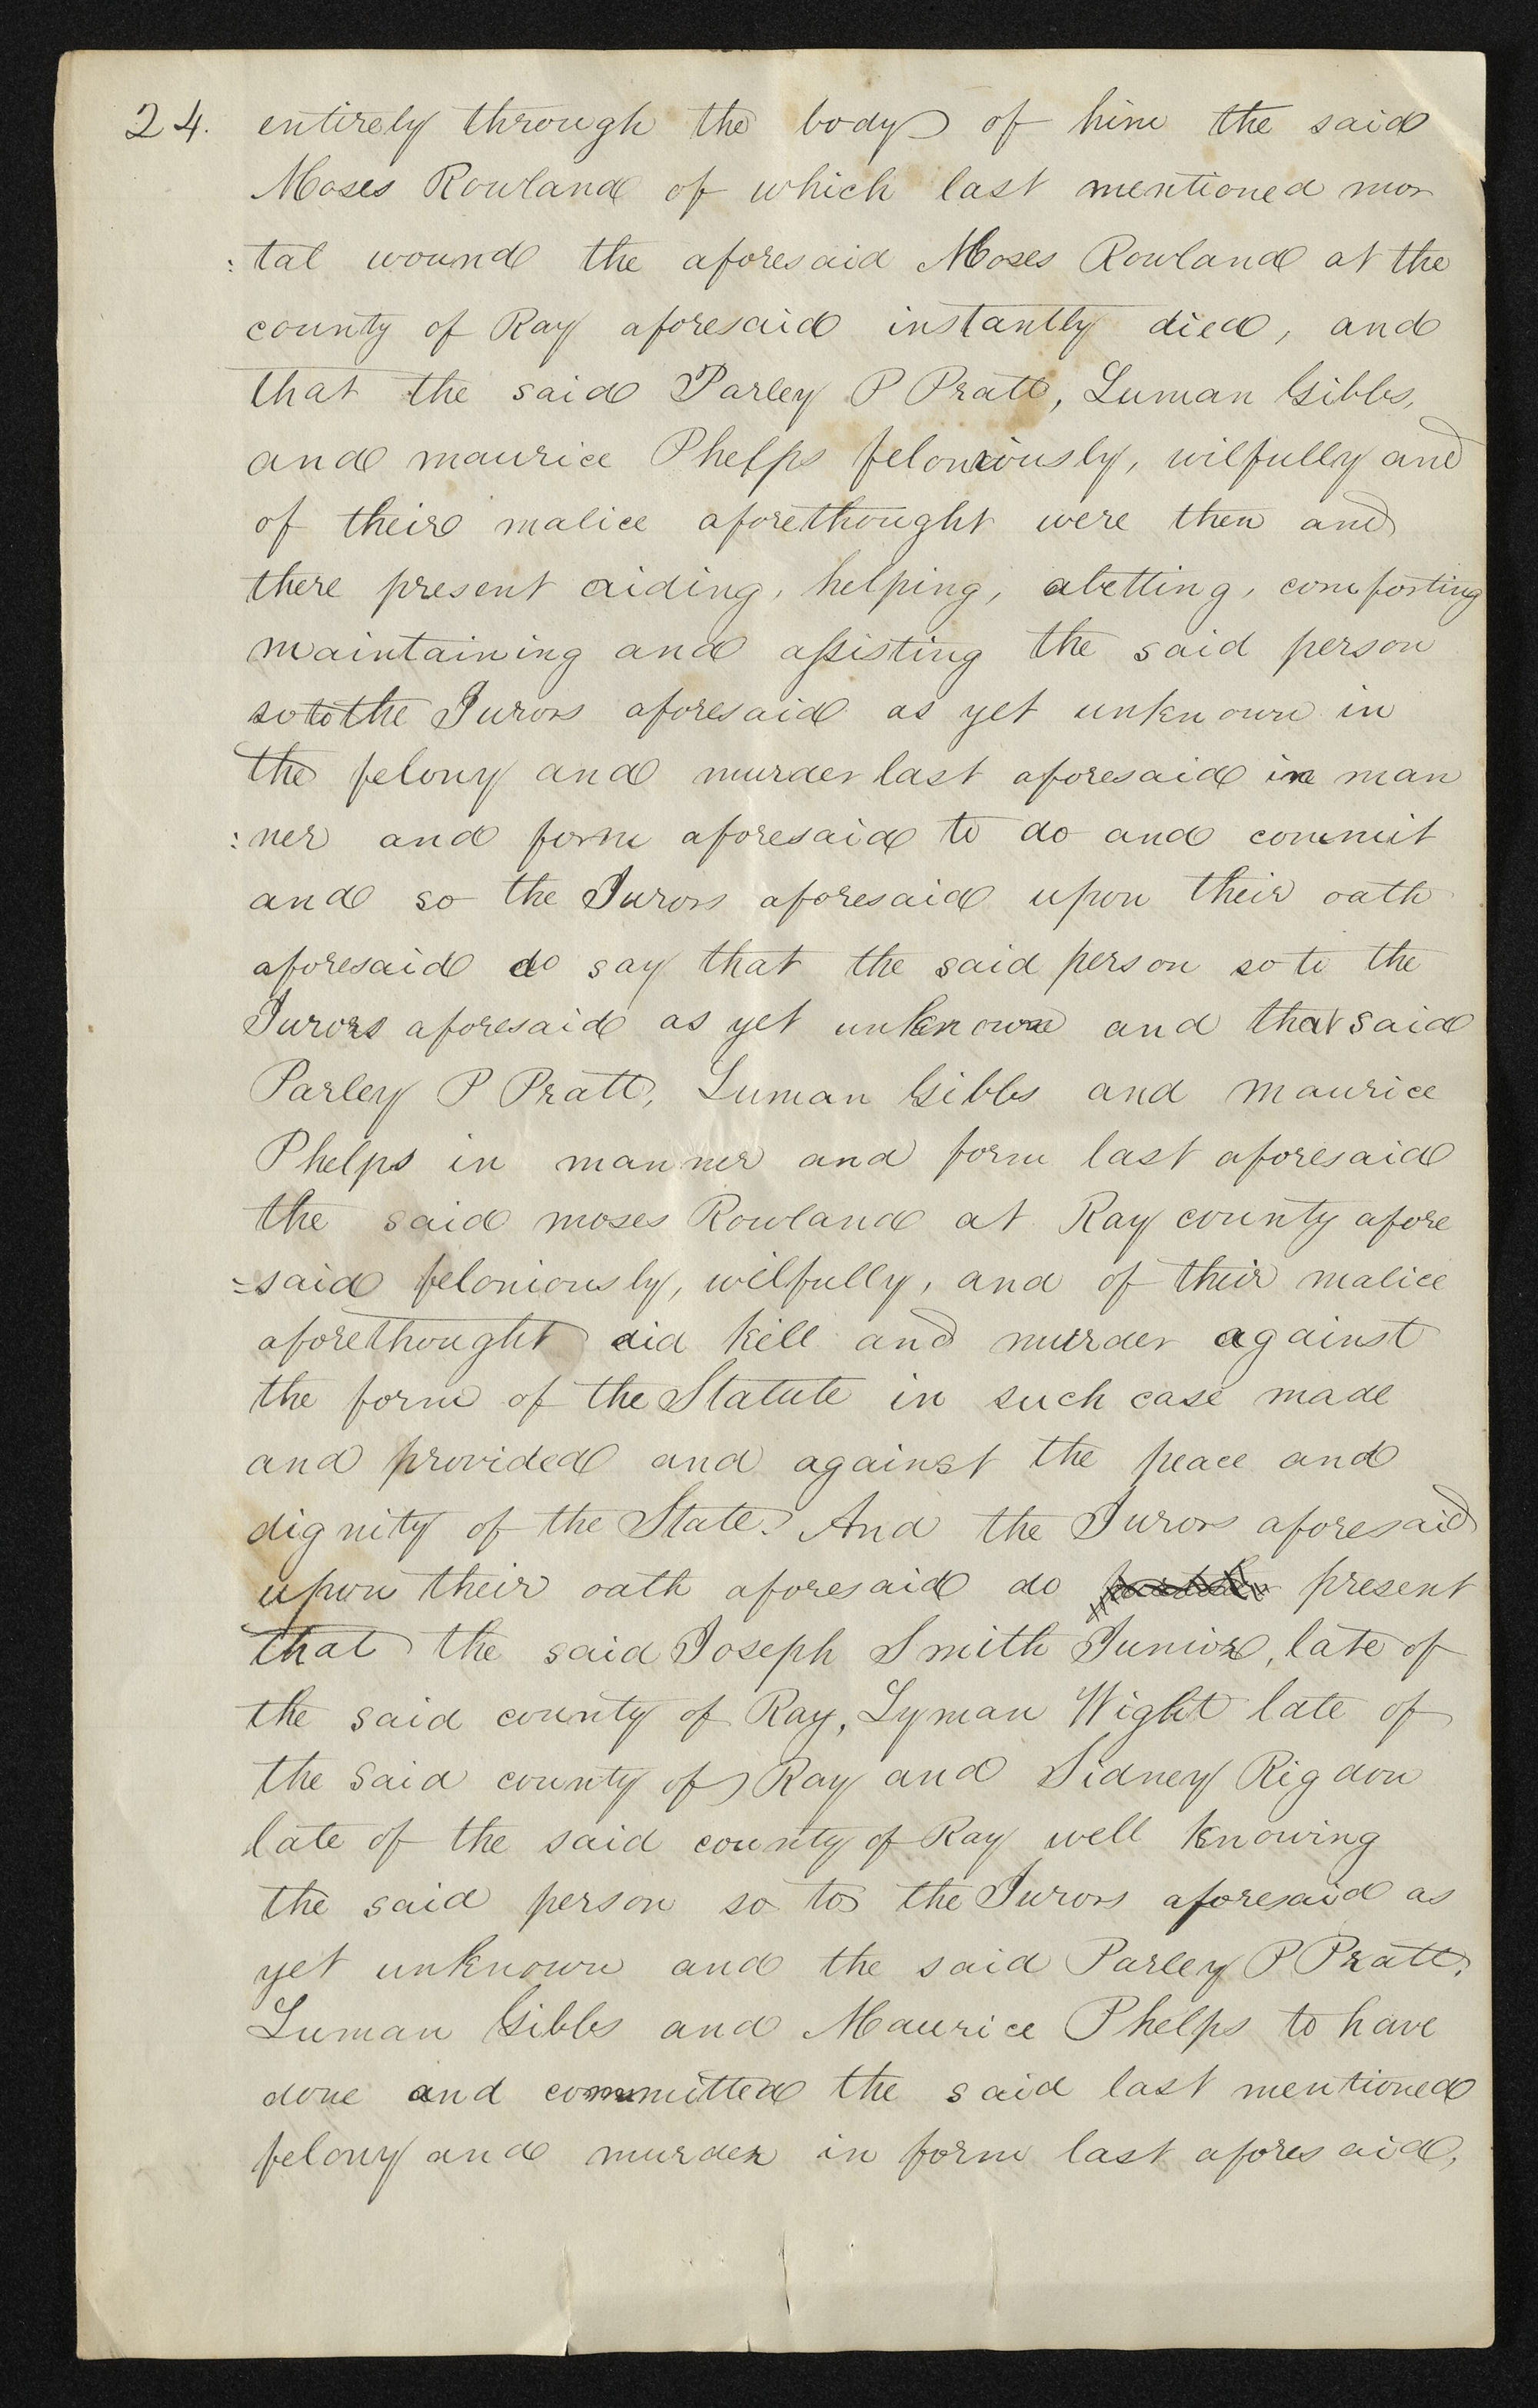 24. entirely through the body of him the said
Moses Rowland of which last mentioned mor
:tal wound the aforesaid Moses Rowland at the
county of Ray aforesaid instantly died, and
that the said Parley P Pratt, Luman Gibbs,
and maurice Phelps feloniously, wilfully and
of their malice aforethought were then and
there present aiding, helping, abetting, comforting
maintaining and assisting the said person
so to the Jurors aforesaid as yet unknown in
the felony and murder last aforesaid in man
:ner and form aforesaid to do and commit
and so the Jurors aforesaid upon their oath
aforesaid do say that the said person so to the
Jurors aforesaid as yet unknown and that said
Parley P Pratt, Luman Gibbs and maurice
Phelps in manner and form last aforesaid
the said moses Rowland at Ray county afore
=said feloniously, wilfully, and of their malice
aforethought did kill and murder against
the form of the Statute in such case made
and provided and against the peace and
dignity of the State. And the Jurors aforesaid
upon their oath aforesaid do present
that the said Joseph Smith Junior, late of
the said county of Ray, Lyman Wight late of
the said county of Ray and Sidney Rigdon
late of the said county of Ray well knowing
the said person so to the Jurors aforesaid as
yet unknown and the said Parley P Pratt,
Luman Gibbs and Maurice Phelps to have
done and committed the said last mentioned
felony and murder in form last aforesaid,